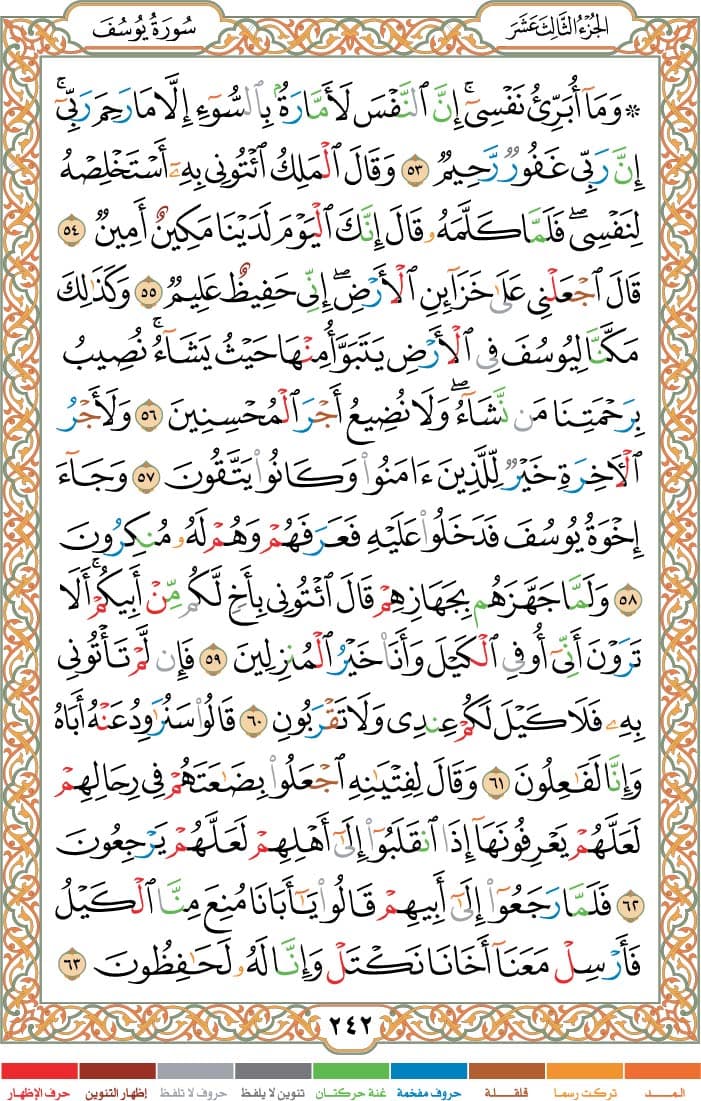 الجزء الثالث عشر
سورة يوسف
۞ وَمَآ أُبَرِّئُ نَفْسِىٓ ۚ إِنَّ ٱلنَّفْسَ لَأَمَّارَةٌۢ بِٱلسُّوٓءِ إِلَّا مَا رَحِمَ رَبِّىٓ ۚ
إِنَّ رَبِّى غَفُورٌ رَّحِيمٌ ٥٣ وَقَالَ ٱلْمَلِكُ ٱئْتُونِى بِهِۦٓ أَسْتَخْلِصْهُ
لِنَفْسِى ۖ فَلَمَّا كَلَّمَهُۥ قَالَ إِنَّكَ ٱلْيَوْمَ لَدَيْنَا مَكِينٌ أَمِينٌ ٥٤
قَالَ ٱجْعَلْنِى عَلَىٰ خَزَآئِنِ ٱلْأَرْضِ ۖ إِنِّى حَفِيظٌ عَلِيمٌ ٥٥ وَكَذَٰلِكَ
مَكَّنَّا لِيُوسُفَ فِى ٱلْأَرْضِ يَتَبَوَّأُ مِنْهَا حَيْثُ يَشَآءُ ۚ نُصِيبُ
بِرَحْمَتِنَا مَن نَّشَآءُ ۖ وَلَا نُضِيعُ أَجْرَ ٱلْمُحْسِنِينَ ٥٦ وَلَأَجْرُ
ٱلْـَٔاخِرَةِ خَيْرٌ لِّلَّذِينَ ءَامَنُوا۟ وَكَانُوا۟ يَتَّقُونَ ٥٧ وَجَآءَ
إِخْوَةُ يُوسُفَ فَدَخَلُوا۟ عَلَيْهِ فَعَرَفَهُمْ وَهُمْ لَهُۥ مُنكِرُونَ
٥٨ وَلَمَّا جَهَّزَهُم بِجَهَازِهِمْ قَالَ ٱئْتُونِى بِأَخٍ لَّكُم مِّنْ أَبِيكُمْ ۚ أَلَا
تَرَوْنَ أَنِّىٓ أُوفِى ٱلْكَيْلَ وَأَنَا۠ خَيْرُ ٱلْمُنزِلِينَ ٥٩ فَإِن لَّمْ تَأْتُونِى
بِهِۦ فَلَا كَيْلَ لَكُمْ عِندِى وَلَا تَقْرَبُونِ ٦٠ قَالُوا۟ سَنُرَٰوِدُ عَنْهُ أَبَاهُ
وَإِنَّا لَفَـٰعِلُونَ ٦١ وَقَالَ لِفِتْيَـٰنِهِ ٱجْعَلُوا۟ بِضَـٰعَتَهُمْ فِى رِحَالِهِمْ
لَعَلَّهُمْ يَعْرِفُونَهَآ إِذَا ٱنقَلَبُوٓا۟ إِلَىٰٓ أَهْلِهِمْ لَعَلَّهُمْ يَرْجِعُونَ
٦٢ فَلَمَّا رَجَعُوٓا۟ إِلَىٰٓ أَبِيهِمْ قَالُوا۟ يَـٰٓأَبَانَا مُنِعَ مِنَّا ٱلْكَيْلُ
فَأَرْسِلْ مَعَنَآ أَخَانَا نَكْتَلْ وَإِنَّا لَهُۥ لَحَـٰفِظُونَ ٦٣
٢٤٢
المـــد تركت رسما قلقـــلة حروف مفخمة غنة حركتان تنوين لا يلفظ حروف لا تلفظ إظهار التنوين حرف الإظهار